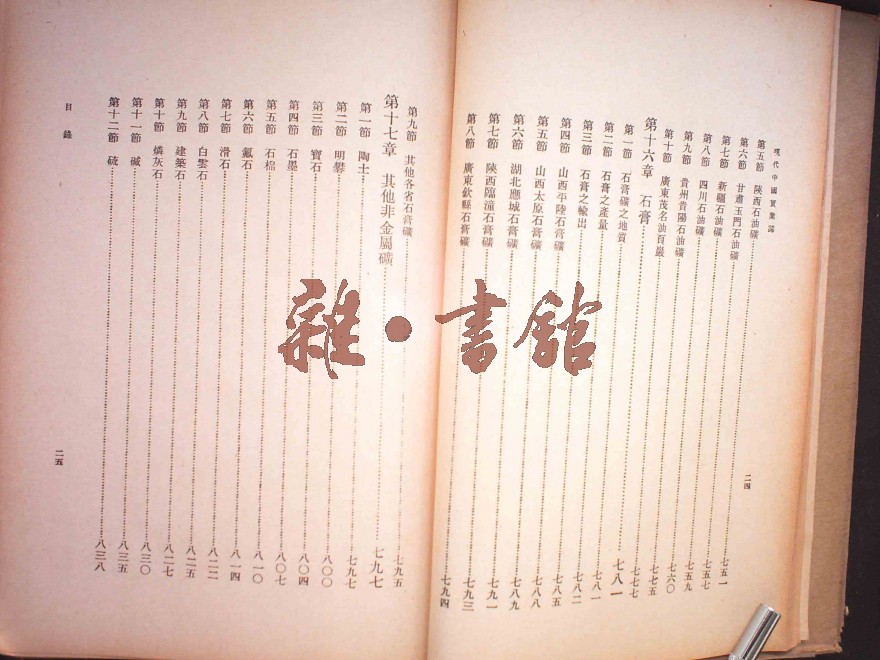 現代中國實業誌
第五節 陝西石油礦……七五一
第六節 甘肅玉門石油礦……七五七
第七節 新疆石油礦……七五九
第八節 四川石油礦……七六〇
第九節 貴州貴陽石油礦……七七五
第十節 廣東茂名油百巖……七七七
第十六章 石膏……七八一
第一節 石膏礦之地質……七八一
第二節 石膏之產量……七八二
第三節 石膏之輸出……七八五
第四節 山西平陸石膏礦……七八八
第五節 山西太原石膏礦……七八九
第六節 湖北應城石膏礦……七九一
第七節 陝西臨潼石膏礦……七九三
第八節 廣東欽縣石膏礦……七九四
二四
第九節 其他各省石膏礦……七九五
第十七章 其他非金屬礦……七九七
第一節 陶土……七九七
第二節 明礬……八〇〇
第三節 寶石……八〇四
第四節 石墨……八〇七
第五節 石棉……八一〇
第六節 氟石……八一四
第七節 滑石……八二二
第八節 白雲石……八二五
第九節 建築石……八二七
第十節 燐灰石……八三〇
第十一節 碱……八三五
第十二節 硫……八三八
目錄
二五
雜•書館